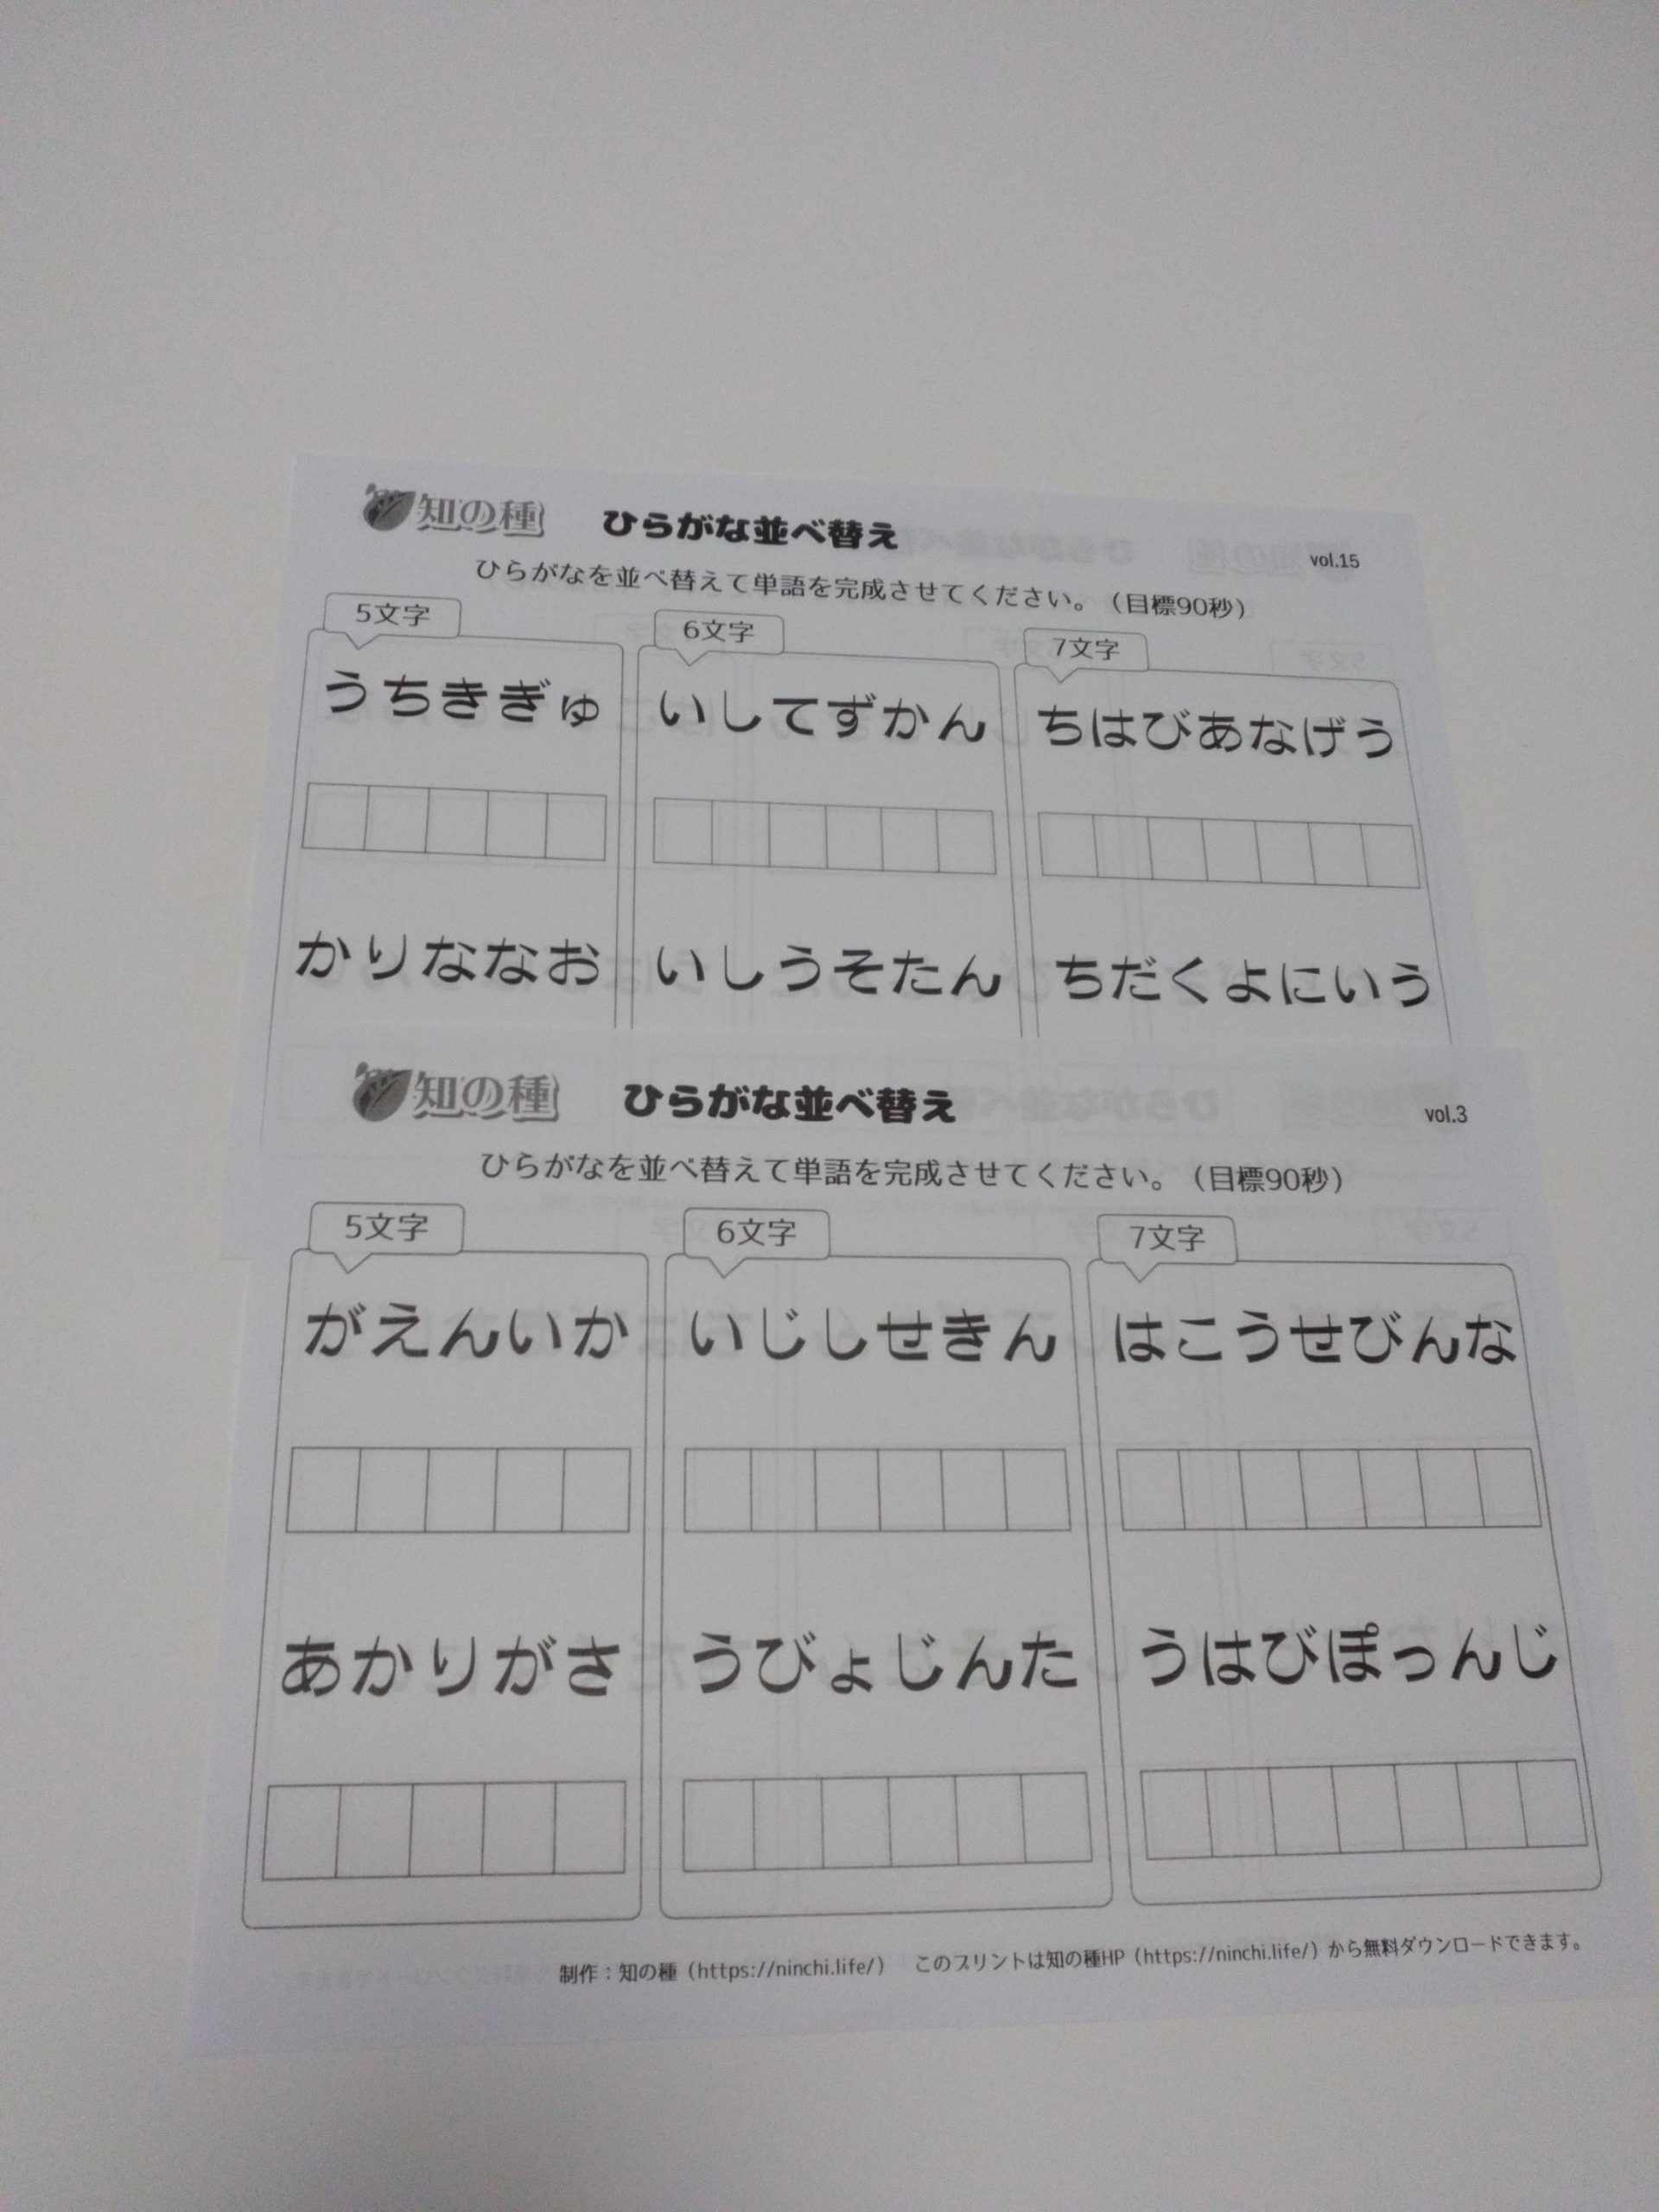 知の種 ひらがな並べ替え vol.15
ひらがなを並べ替えて単語を完成させてください。（目標90秒）
5文字 6文字 7文字
うちきぎゅ いしてずかん ちはびあなげう
かりななお いしうそたん ちだくよにいう
知の種 ひらがな並べ替え vol.3
ひらがなを並べ替えて単語を完成させてください。（目標90秒）
5文字 6文字 7文字
がえんいか いじしせきん はこうせびんな
あかりがさ うびょじんた うはびぽっんじ
制作：知の種（https://ninchi.life/） このプリントは知の種HP（https://ninchi.life/）から無料ダウンロードできます。